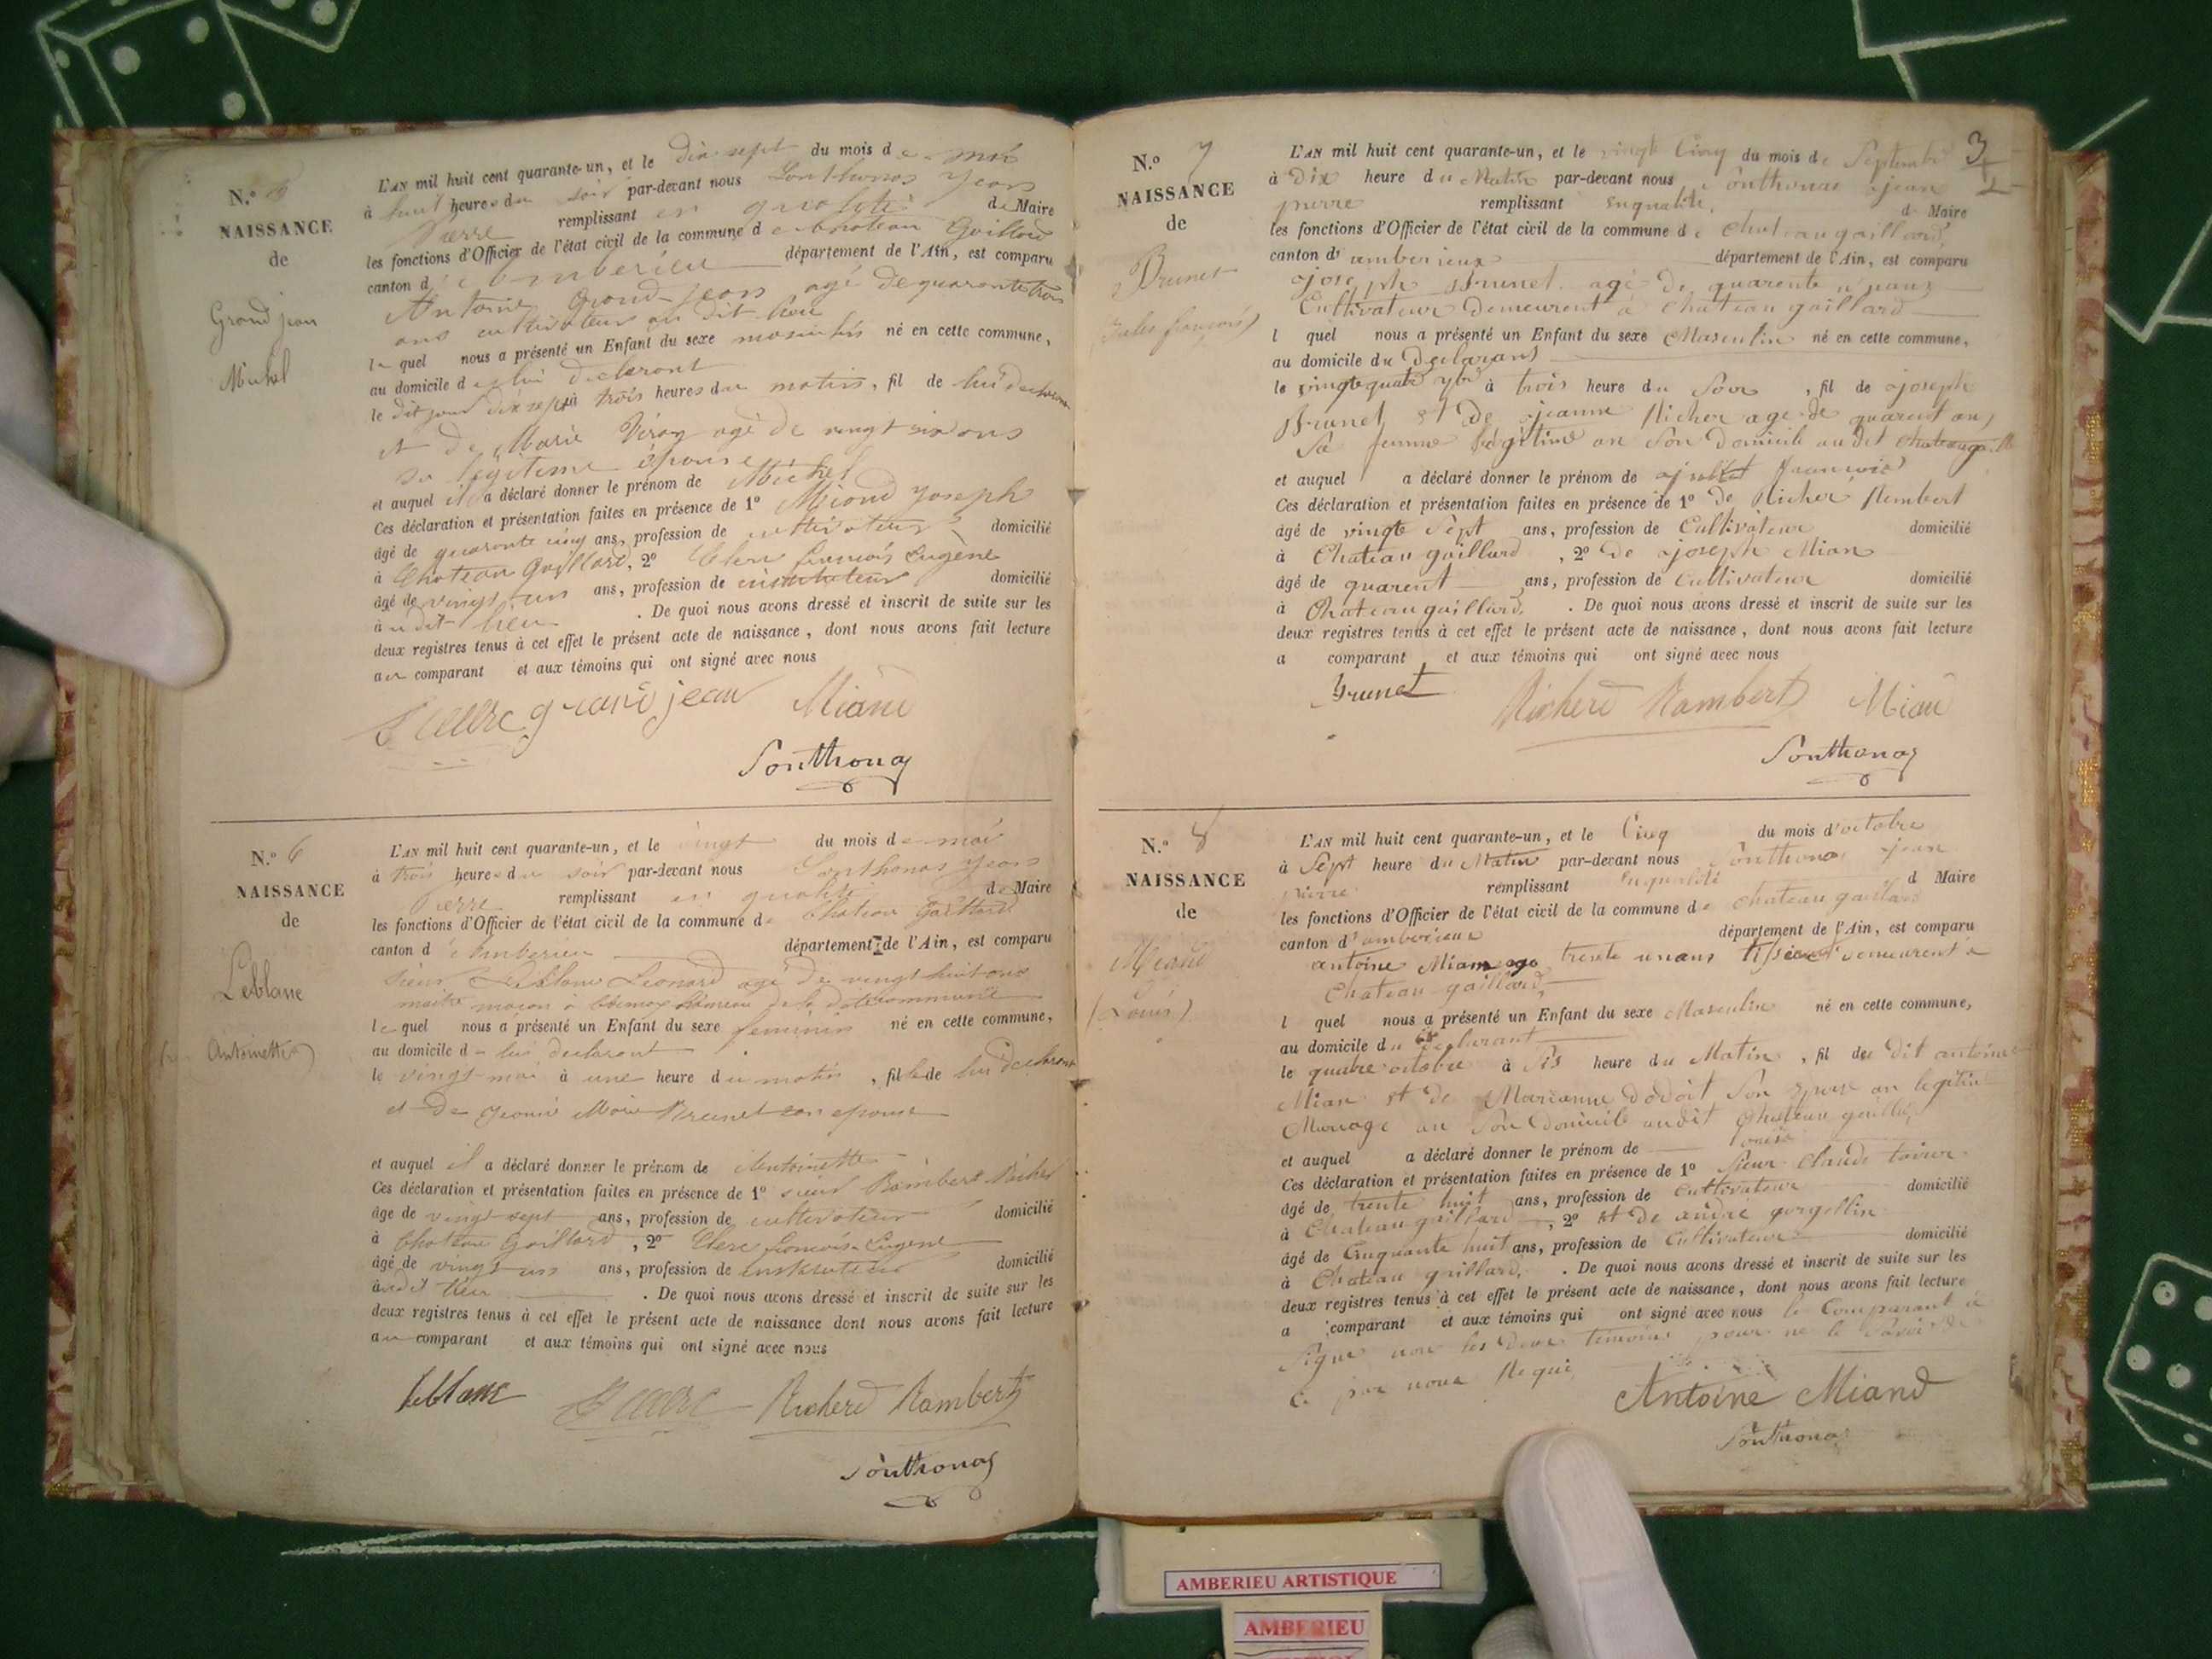 N.° 5
NAISSANCE
de
Grand jean
Michel
L'AN mil huit cent quarante-un, et le dix sept du mois de mai
à huit heures du soir par-devant nous Sonthonas Jean
Pierre remplissant en qualité de Maire
les fonctions d'Officier de l'état civil de la commune de Chateau Gaillard
canton d' département de l'Ain, est comparu
Antoine Grand-Jean agé de quarante trois
ans cultivateur au dit lieu
le quel nous a présenté un Enfant du sexe masculin né en cette commune,
au domicile de lui declarant
le dit jour dix sept à trois heures du matin, fil de lui declarant
et de Marie agé de vingt six ans
sa légitime épouse
et auquel il a déclaré donner le prénom de Michel
Ces déclaration et présentation faites en présence de 1° Miand Joseph
âgé de quarante cinq ans, profession de cultivateur domicilié
à Chateau Gaillard, 2° Clerc francois Eugène
âgé de vingt un ans, profession de instituteur domicilié
au dit lieu . De quoi nous avons dressé et inscrit de suite sur les
deux registres tenus à cet effet le présent acte de naissance, dont nous avons fait lecture
au comparant et aux témoins qui ont signé avec nous
grand jean Miand
Sonthonas
N.° 6
NAISSANCE
de
Leblanc
Antoinette
L'AN mil huit cent quarante-un, et le vingt du mois de mai
à trois heures du soir par-devant nous Sonthonas Jean
Pierre remplissant en qualité de Maire
les fonctions d'Officier de l'état civil de la commune de Chateau Gaillard
canton d'Amberieu département de l'Ain, est comparu
sieur Leblanc Leonard agé de vingt huit ans
maitre maçon à hameau de la dite commune
le quel nous a présenté un Enfant du sexe feminin né en cette commune,
au domicile de lui declarant
le vingt mai à une heure du matin, fille de lui declarant
et de Marie Brunet son epouse
et auquel il a déclaré donner le prénom de Antoinette
Ces déclaration et présentation faites en présence de 1° sieur Rambert Richerd
âgé de vingt sept ans, profession de cultivateur domicilié
à Chateau Gaillard, 2° Clerc francois Eugene
âgé de vingt un ans, profession de instituteur domicilié
au dit lieu . De quoi nous avons dressé et inscrit de suite sur les
deux registres tenus à cet effet le présent acte de naissance dont nous avons fait lecture
au comparant et aux témoins qui ont signé avec nous
leblanc Richerd Rambert
Sonthonas
3
N.° 7
NAISSANCE
de
Brunet
(Jules francois)
L'AN mil huit cent quarante-un, et le vingt Cinq du mois de Septembre
à Dix heure du Matin par-devant nous Sonthonas jean
pierre remplissant enqualité d Maire
les fonctions d'Officier de l'état civil de la commune de Chateau gaillard,
canton d'amberieux département de l'Ain, est comparu
joseph Brunet agé de quarente
Cultivateur Demeurent à chateau gaillard
l quel nous a présenté un Enfant du sexe Masculin né en cette commune,
au domicile du Declarant
le vingtquatre 7bre à trois heure du Soir, fil de joseph
Brunet et de jeanne Richer age de quarent ans
Sa femme légitime an Son Domicile audit chateaugaill
et auquel a déclaré donner le prénom de francois
Ces déclaration et présentation faites en présence de 1° de Richer Rembert
âgé de vingte Sept ans, profession de Cultivateur domicilié
à Chateau gaillard, 2° de joseph Mian
âgé de quarent ans, profession de Cultivateur domicilié
à Chateau gaillard, . De quoi nous avons dressé et inscrit de suite sur les
deux registres tenus à cet effet le présent acte de naissance, dont nous avons fait lecture
a comparant et aux témoins qui ont signé avec nous
Brunet Richerd Rambert Mian
Sonthonas
N.° 8
NAISSANCE
de
Miand
(Louis)
L'AN mil huit cent quarante-un, et le Cinq du mois d'octobre
à Sept heure du Matin par-devant nous Sonthonas jean
pierre remplissant enqualité d Maire
les fonctions d'Officier de l'état civil de la commune de chateau gaillard
canton d'amberieux département de l'Ain, est comparu
antoine Mian age trente unans Demeurent à
Chateau gaillard,
l quel nous a présenté un Enfant du sexe Masculin né en cette commune,
au domicile du declarant
le quatre octobre à Sis heure du Matin, fil du dit antoine
Mian et de Marianne Dodoit Son epouse an legitime
Mariage an Son Domicile audit Chateau gaillar
et auquel a déclaré donner le prénom de
Ces déclaration et présentation faites en présence de 1° Sieur Claude
âgé de trente huit ans, profession de Cultivateur domicilié
à Chateau gaillard, 2° et de andre
âgé de Cinquante huit ans, profession de Cultivateur domicilié
à Chateau gaillard, . De quoi nous avons dressé et inscrit de suite sur les
deux registres tenus à cet effet le présent acte de naissance, dont nous avons fait lecture
a comparant et aux témoins qui ont signé avec nous le Comparant à
Signe non les deux temoins pour ne le Savoir de
par nous Requi
Antoine Miand
Sonthonas
AMBERIEU ARTISTIQUE
AMBERIEU